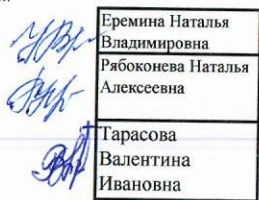 Еремина Наталья
Владимировна
Рябоконева Наталья
Алексеевна
Тарасова
Валентина
Ивановна